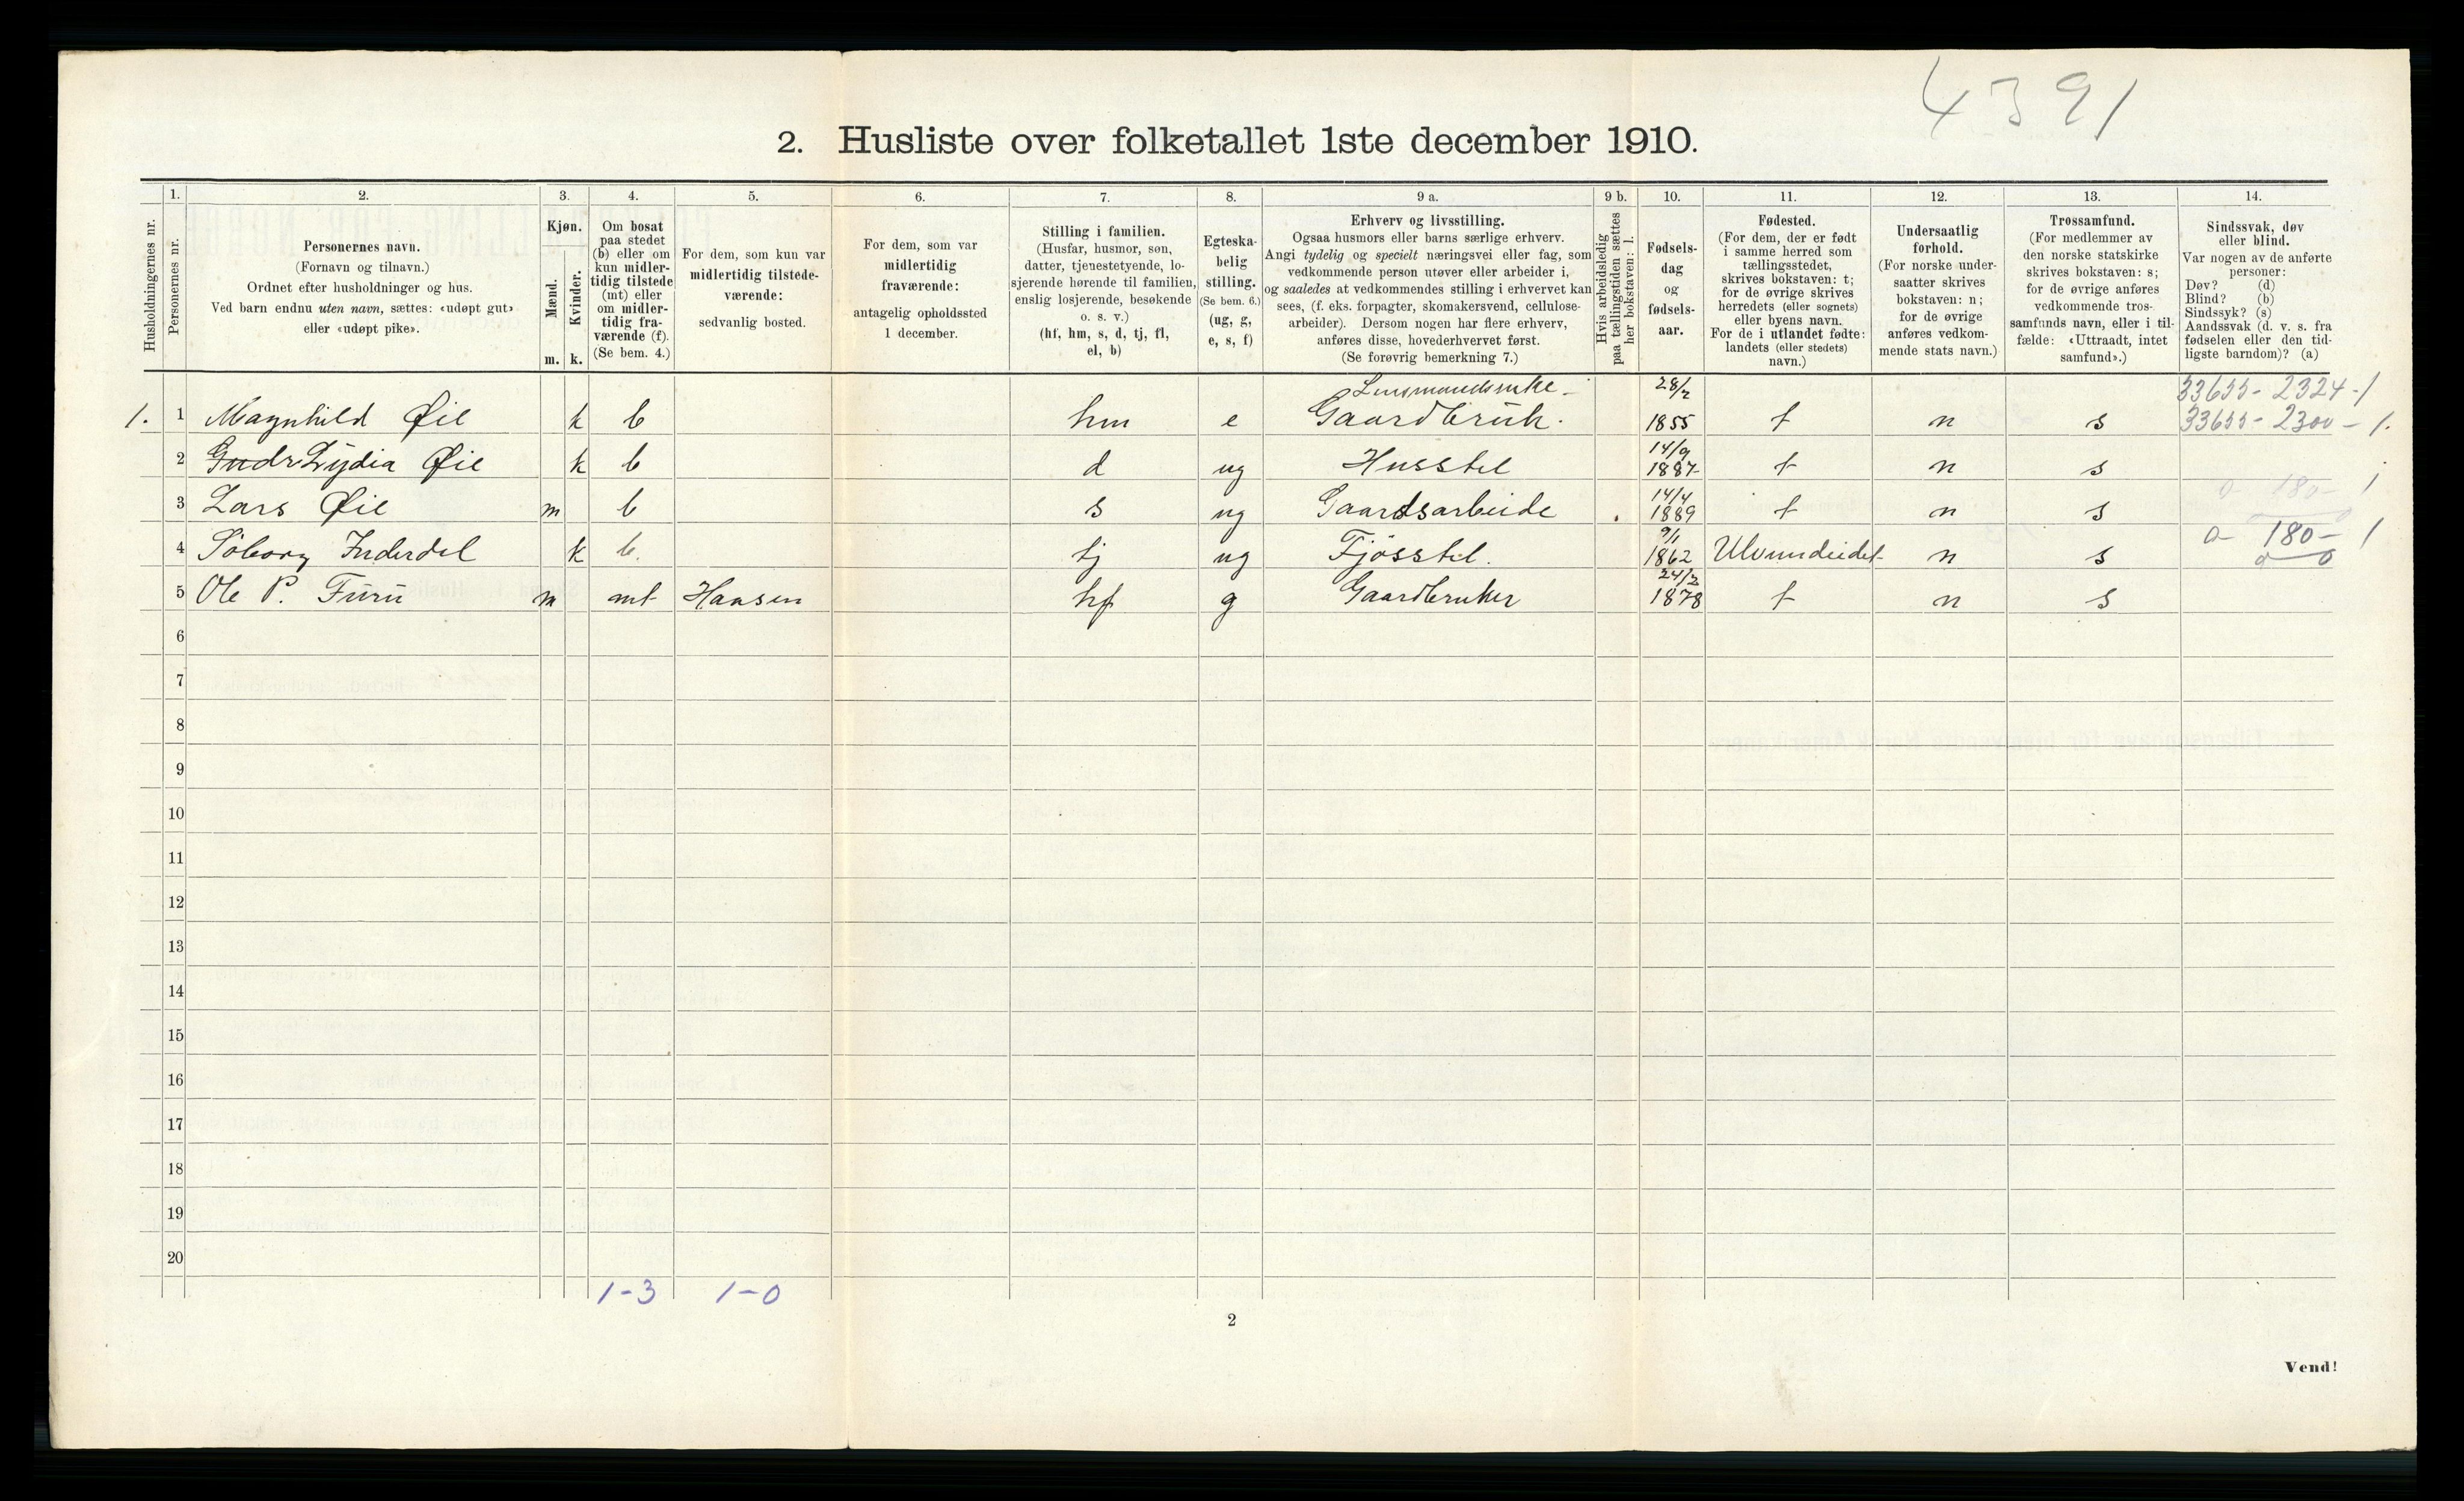 4391
2. Husliste over folketallet 1ste december 1910.
Husholdningernes nr.
1.
Personernes nr.
2.
Personernes navn.
(Fornavn og tilnavn.)
Ordnet efter husholdninger og hus.
Ved barn endnu uten navn, sættes: «udøpt gut»
eller «udøpt pike».
3.
Kjøn.
Mænd.
Kvinder.
m.
k.
4.
Om bosat
paa stedet
(b) eller om
kun midler-
tidig tilstede
(mt) eller
om midler-
tidig fra-
værende (f).
(Se bem. 4.)
5.
For dem, som kun var
midlertidig tilstede-
værende:
sedvanlig bosted.
6.
For dem, som var
midlertidig
fraværende:
antagelig opholdssted
1 december.
7.
Stilling i familien.
(Husfar, husmor, søn,
datter, tjenestetyende, lo-
sjerende hørende til familien,
enslig losjerende, besøkende
o. s. v.)
(hf, hm, s, d, tj, fl,
el, b)
8.
Egteska-
belig
stilling.
(Se bem. 6.)
(ug, g,
e, s, f)
9 a.
Erhverv og livsstilling.
Ogsaa husmors eller barns særlige erhverv.
Angi tydelig og specielt næringsvei eller fag, som
vedkommende person utøver eller arbeider i,
og saaledes at vedkommendes stilling i erhvervet kan
sees, (f. eks. forpagter, skomakersvend, cellulose-
arbeider). Dersom nogen har flere erhverv,
anføres disse, hovederhvervet først.
(Se forøvrig bemerkning 7.)
9 b.
Hvis arbeidsledig
paa tællingstiden sættes
her bokstaven: l.
10.
Fødsels-
dag
og
fødsels-
aar.
11.
Fødested.
(For dem, der er født
i samme herred som
tællingsstedet,
skrives bokstaven: t;
for de øvrige skrives
herredets (eller sognets)
eller byens navn.
For de i utlandet fødte:
landets (eller stedets)
navn.)
12.
Undersaatlig
forhold.
(For norske under-
saatter skrives
bokstaven: n;
for de øvrige
anføres vedkom-
mende stats navn.)
13.
Trossamfund.
(For medlemmer av
den norske statskirke
skrives bokstaven: s;
for de øvrige anføres
vedkommende tros-
samfunds navn, eller i til-
fælde: «Uttraadt, intet
samfund».)
14.
Sindssvak, døv
eller blind.
Var nogen av de anførte
personer:
Døv? (d)
Blind? (b)
Sindssyk? (s)
Aandssvak (d. v. s. fra
fødselen eller den tid-
ligste barndom)? (a)
Lensmandsenke - 28/2 33655 - 2324 - 1
1. 1 Magnhild Øie k b hm e Gaardbruk. 1855 t n s 33655 - 2300 - 1.
14/9
2 Gudr Lydia Øie k b d ug Husstel 1887 t n s
14/4 0 180 - 1
3 Lars Øie m b s ug Gaardsarbeide 1889 t n s
9/1 0 - 180 - 1
4 Søborg Inderdal k b. tj ug Fjøsstel. 1862 Ulvundeidet n s 0 0
24/2
5 Ole P. Furu m mt Haasen hf g Gaardbruker 1878 t n s
6
7
8
9
10
11
12
13
14
15
16
17
18
19
20
1-3 1-0
2
Vend!